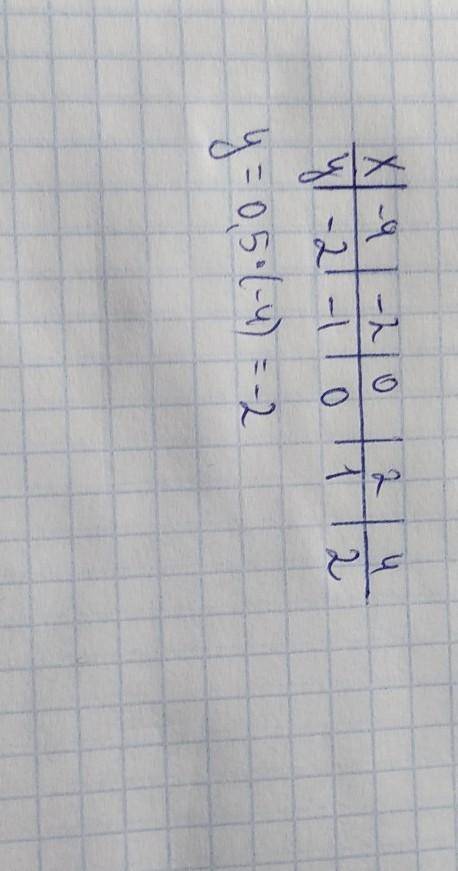 x -4 -2 0 2 4
y -2 -1 0 1 2
y = 0,5·(-4) = -2